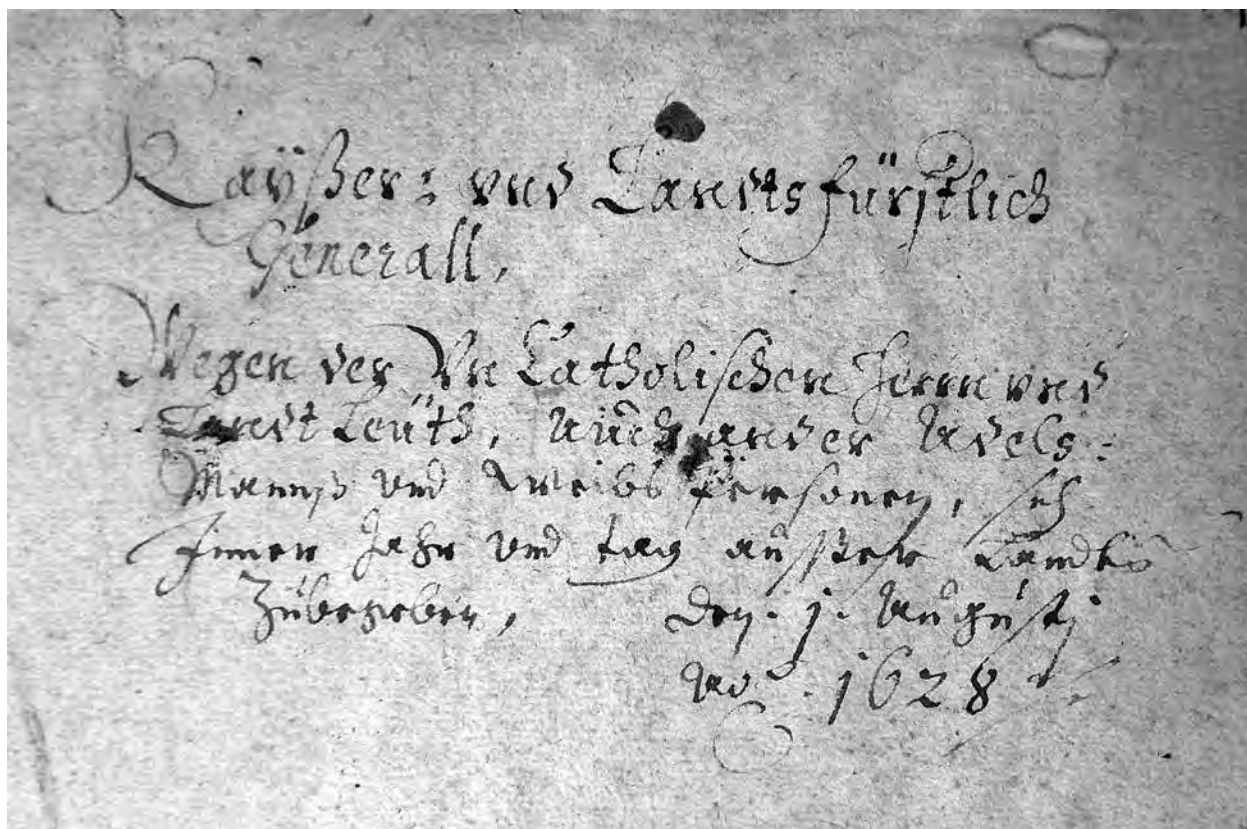 Kaÿßer: vnd Landtsfürstlich
Generall,
Wegen der Vn Catholischen Herrn vnd
Landt Leüth, Auch ander Adels:
Mannß vnd Weibs Persohnen, sich
Inner Jahr vnd tag ausser Landts
Zubegeben, Den. j. Augustj
Ao. 1628